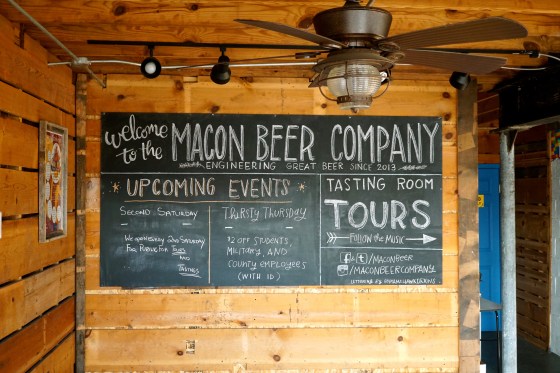 welcome
to the MACON BEER COMPANY
ENGINEERING GREAT BEER SINCE 2013
* UPCOMING EVENTS *
SECOND SATURDAY
2ND SATURDAY
FOR PUBLIC FOR TOURS
AND
TASTINGS
THIRSTY THURSDAY
$2 OFF STUDENTS,
MILITARY, AND
COUNTY EMPLOYEES
(WITH ID)
TASTING ROOM
TOURS
Follow the MUSIC
f & t /MACONBEER
/MACONBEERCOMPANY
LETTERING BY